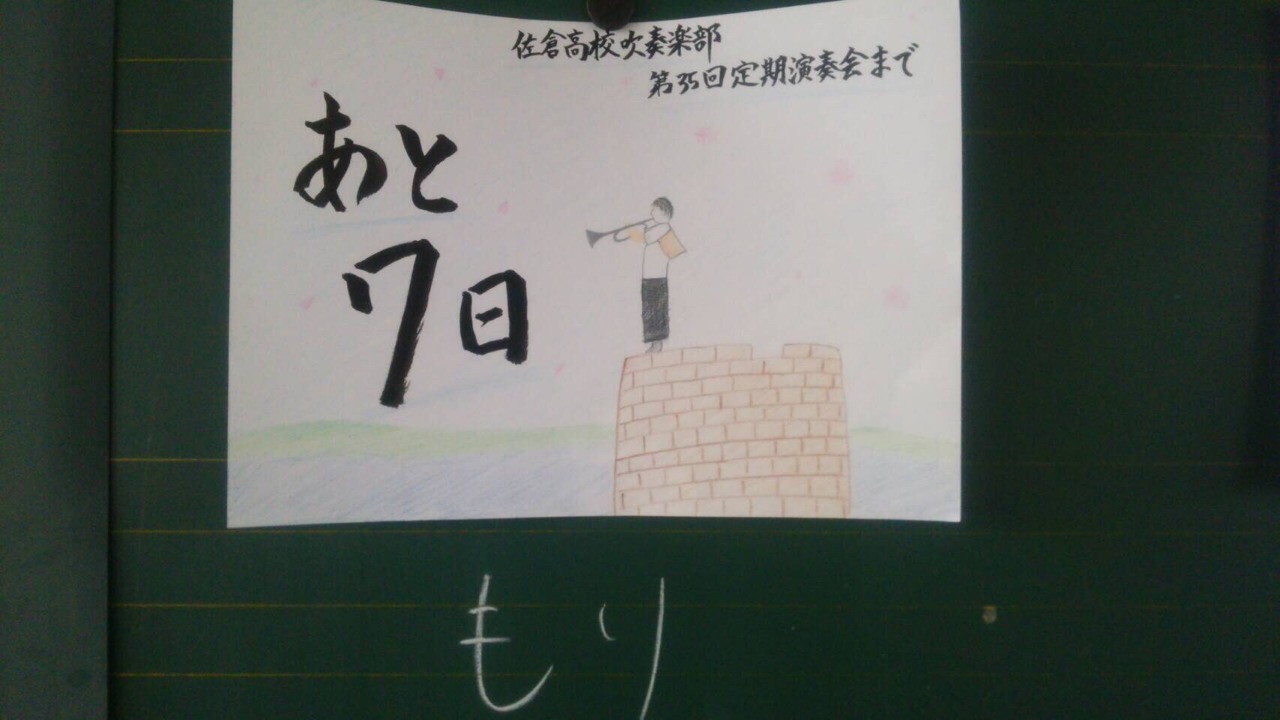 佐倉高校吹奏楽部
第35回定期演奏会まで
あと
7日
もり